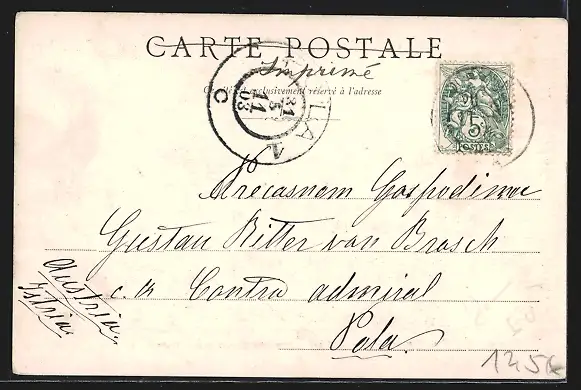 CARTE POSTALE
Imprimé
Ce côté exclusivement réservé à l'adresse
POLA 1
31
5
11
03
C
5
POSTES
Precasnom Gospodinu
Gustav Ritter von Brosch
c. k. Contra admiral
Pola.
Austria
Istria.